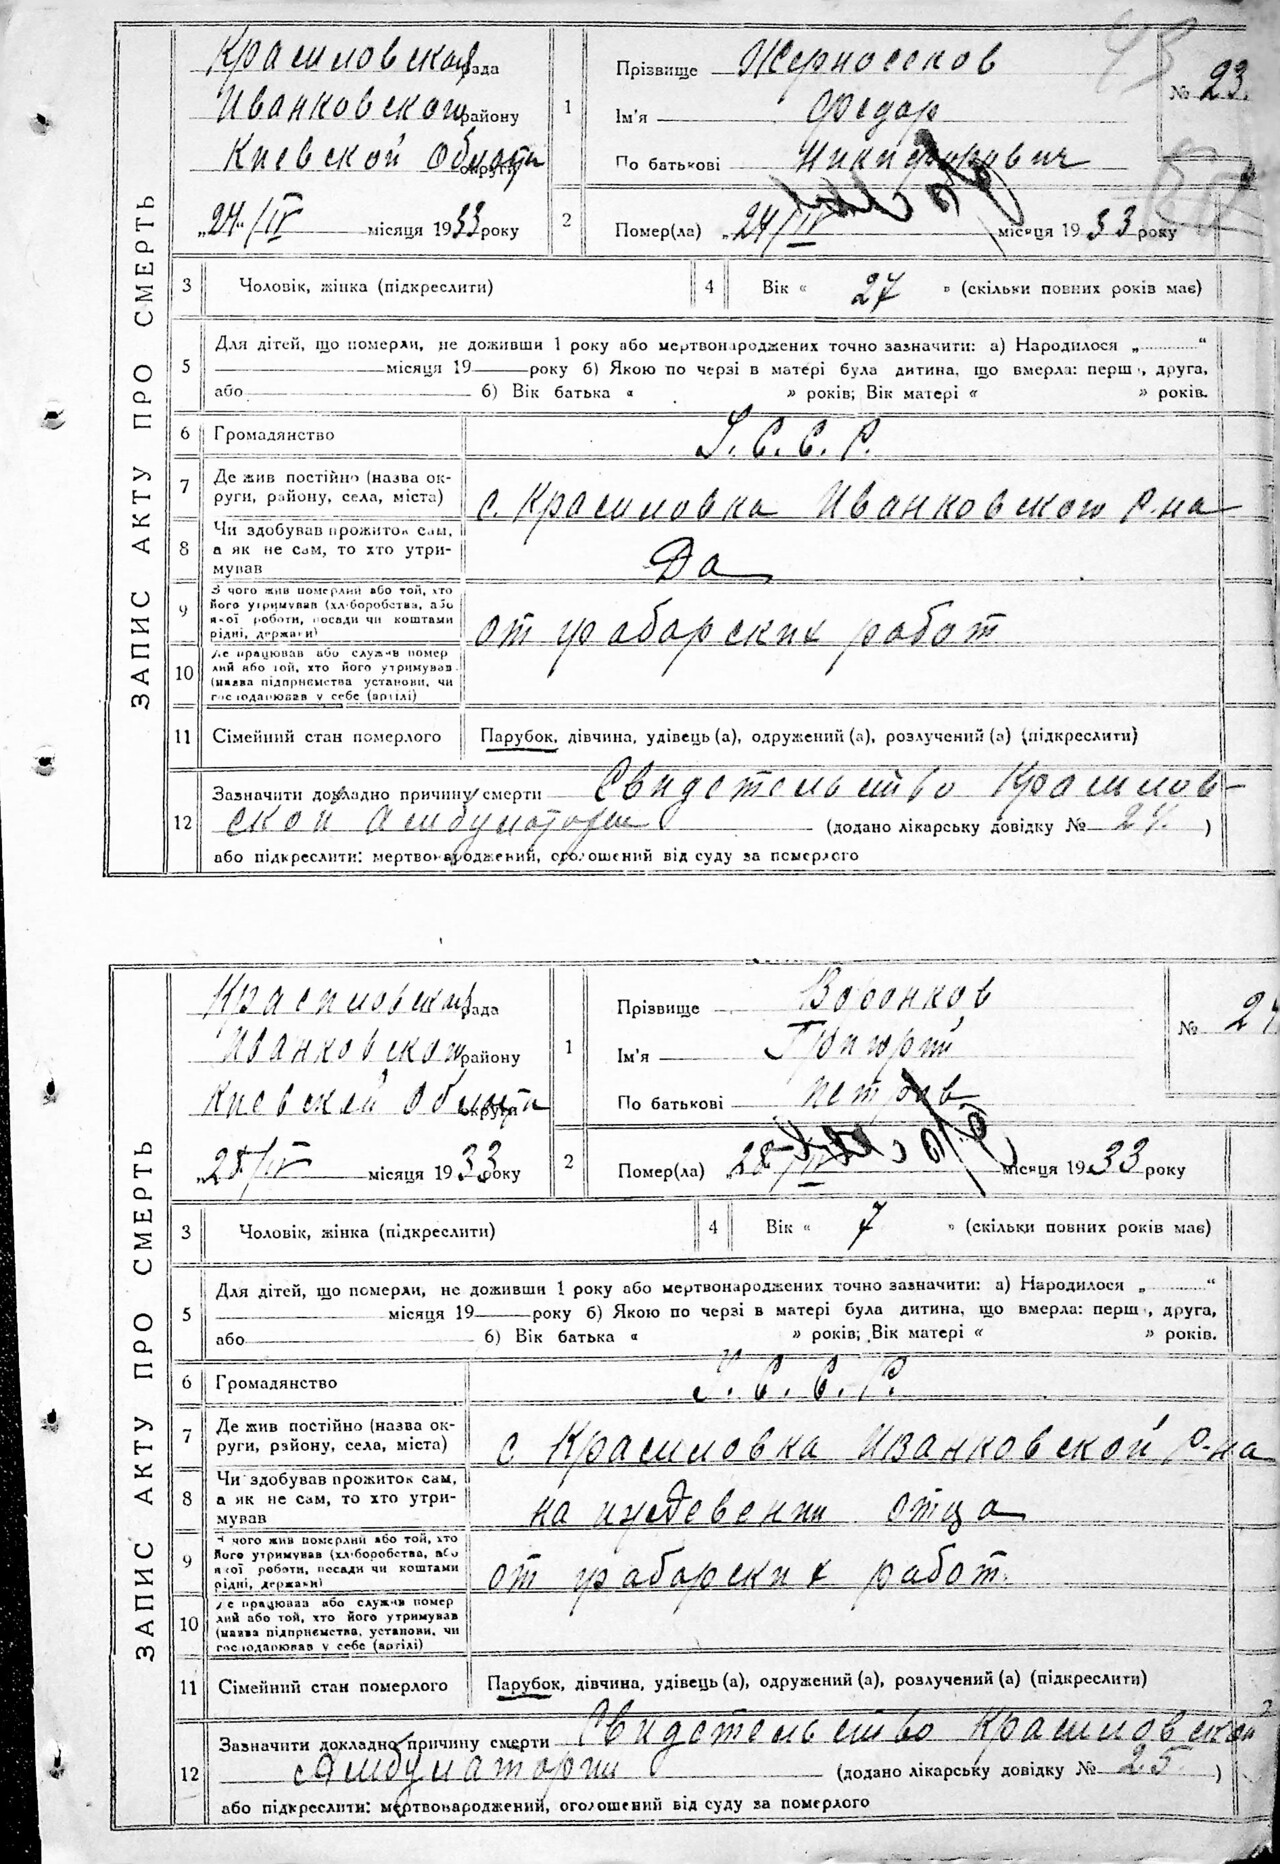 ЗАПИС АКТУ ПРО СМЕРТЬ
Красиловская рада
Иванковского району
Киевской Области округи
„24“/IV місяця 1933 року
1
Прізвище Жерносеков
Ім'я Федор
По батькові Никифорович
№ 23.
2
Помер(ла) „24/IV місяця 1933 року
3 Чоловік, жінка (підкреслити)
4 Вік « 27 » (скільки повних років має)
5
Для дітей, що померли, не доживши 1 року або мертвонароджених точно зазначити: а) Народилося „ “
місяця 19 року б) Якою по черзі в матері була дитина, що вмерла: перш , друга,
або б) Вік батька « » років; Вік матері « » років.
6 Громадянство У.С.С.Р.
7 Де жив постійно (назва ок-
руги, району, села, міста)
с. Красиловка Иванковского р-на
8 Чи здобував прожиток сам,
а як не сам, то хто утри-
мував
Да
9 З чого жив померлий або той, хто
його утримував (хліборобства, або
якої роботи, посади чи коштами
рідні, держави)
от грабарских работ
10 Де працював або служив помер
лий або той, хто його утримував
(назва підприємства установи, чи
господарював у себе (артілі)
11 Сімейний стан померлого Парубок, дівчина, удівець(а), одружений(а), розлучений(а) (підкреслити)
12 Зазначити докладно причину смерти Свидетельство Красилов-
ской Амбулатории (додано лікарську довідку № 24 )
або підкреслити: мертвонароджений, оголошений від суду за померлого
ЗАПИС АКТУ ПРО СМЕРТЬ
Красиловская рада
Иванковского району
Киевской Области округи
„28/IV місяця 1933 року
1
Прізвище
Ім'я Григорий
По батькові Петров
№ 24
2
Помер(ла) „28/IV місяця 1933 року
3 Чоловік, жінка (підкреслити)
4 Вік « 7 » (скільки повних років має)
5
Для дітей, що померли, не доживши 1 року або мертвонароджених точно зазначити: а) Народилося „ “
місяця 19 року б) Якою по черзі в матері була дитина, що вмерла: перш , друга,
або б) Вік батька « » років; Вік матері « » років.
6 Громадянство У.С.С.Р.
7 Де жив постійно (назва ок-
руги, району, села, міста)
с Красиловка Иванковской р-на
8 Чи здобував прожиток сам,
а як не сам, то хто утри-
мував
на иждевении отца
9 З чого жив померлий або той, хто
його утримував (хліборобства, або
якої роботи, посади чи коштами
рідні, держави)
от грабарских работ.
10 Де працював або служив помер
лий або той, хто його утримував
(назва підприємства, установи, чи
господарював у себе (артілі)
11 Сімейний стан померлого Парубок, дівчина, удівець(а), одружений(а), розлучений(а) (підкреслити)
12 Зазначити докладно причину смерти Свидетельство Красиловской
Амбулатории (додано лікарську довідку № 25. )
або підкреслити: мертвонароджений, оголошений від суду за померлого